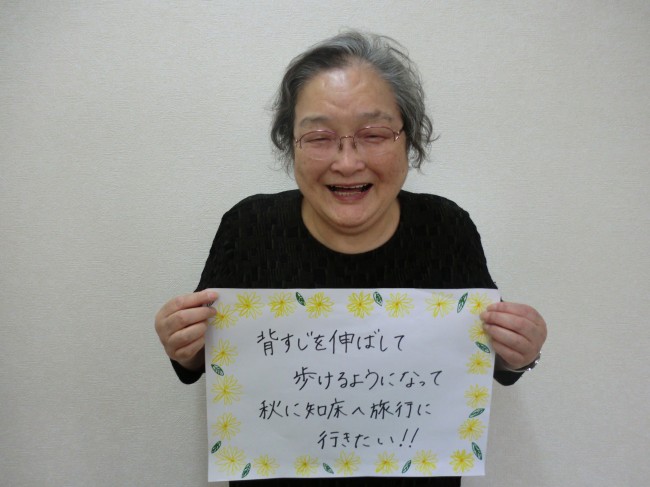 背すじを伸ばして
歩けるようになって
秋に知床へ旅行に
行きたい!!